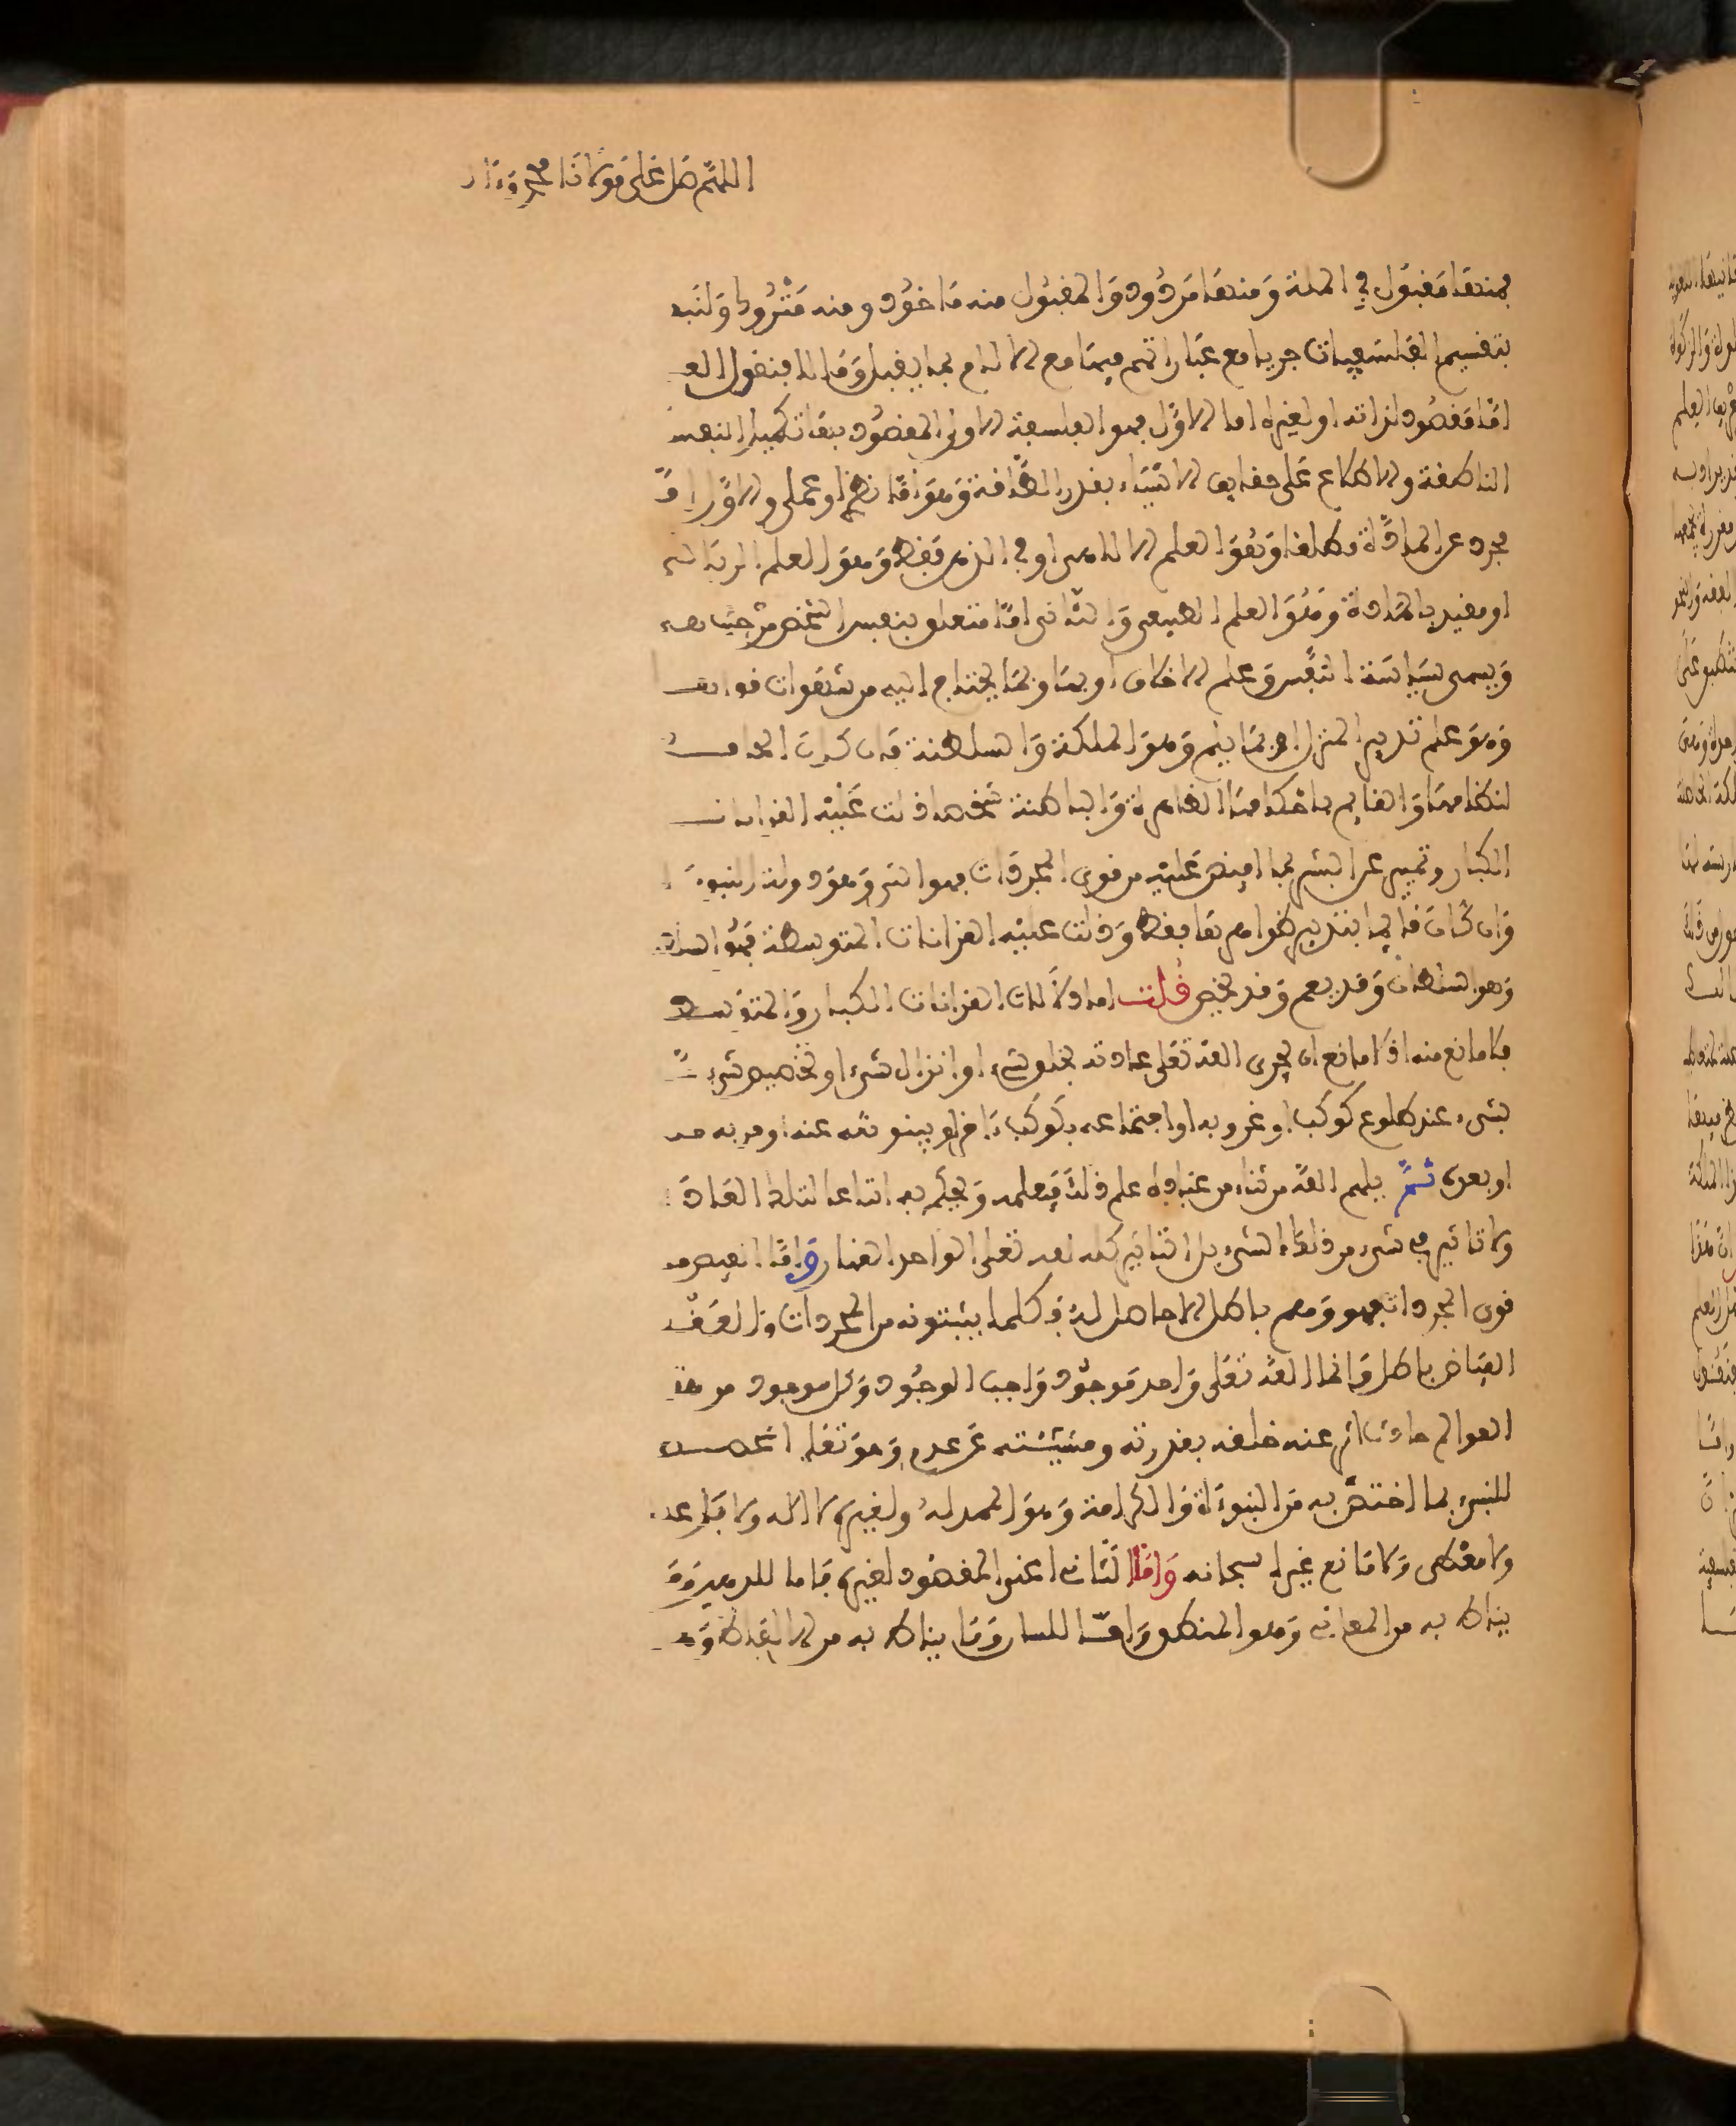 اللهم صل على مولانا محمد وءال
فمنها مقبول في الملة ومنها مردود والمقبول منه ماخوذ ومنه متروك ولنبد
بتقسيم الفلسفيات جريا مع عباراتهم فيها مع الالمام بما يقبل وما لا فنقول العلم
اما مقصود لذاته او لغيره اما الاول فهو الفلسفة الاولى المقصود بها تكميل النفس
الناطقة والاطلاع على حقايق الاشياء بقدر الطاقة وهو اما نظري او عملي والاول اما
مجرد عن المادة مطلقا وهو العلم الالاهي او في الذهن فقط وهو العلم الرياضي
او مقيد بالمادة وهو العلم الطبيعي والثاني اما متعلق بنفس الشخص من حيث
ويسمى سياسة النفس وعلم الاخلاق او بها وبما يحتاج اليه من شهوات
وهو علم تدبير المنزل او بما يعم وهو الملكة والسلطنة فان كان
لنظامها والقايم باحكامها الظاهرة والباطنة شخصا دلت عليه القرانات
الكبار وتميز عن البشر بما افيض عليه من قوى المجردات فهو النبي وهو دولة النبوة
وان كان قايما بتدبير ظواهرها فقط ودلت عليه القرانات المتوسطة فهو الملك
وهو السلطان وقد يعم وقد يخص قلت اما دلالات القرانات الكبار والمتوسط
فلا مانع منه اذ لا مانع ان يجري الله تعلى عادته بخلق شيء او انزال شيء او تخصيص شيء
بشيء عند طلوع كوكب او غروبه او اجتماعه بكوكب ءاخر او بينونته عنه او قربه منه
او بعده ثم يلهم الله من شاء من عباده علم ذلك فيعلمه ويعلم به اتباعا لتلك العادة
ولا تاثير في شيء من ذلك لشيء بل التاثير كله لله تعلى الواحد القهار واما الفيض من
قوى المجردات فهو وهم باطل لا حاصل له فكلما يثبتونه من المجردات والعقل
الفياض باطل وانما الله تعلى واحد موجود واجب الوجود وكل موجود من هذه
العوالم حادث اثر عنه خلقه بقدرته ومشيئته عن عدم وهو تعلى المخصص
للنبي بما اختص به من النبوءة والكرامة وهو الممد له ولغيره لا اله ولا فاعل
ولا معطي ولا مانع غيره سبحانه واما الثاني اعني المقصود لغيره فاما للذهن وما
يناط به من المعاني وهو المنطق واما للسان وما يناط به من الالفاظ وهو